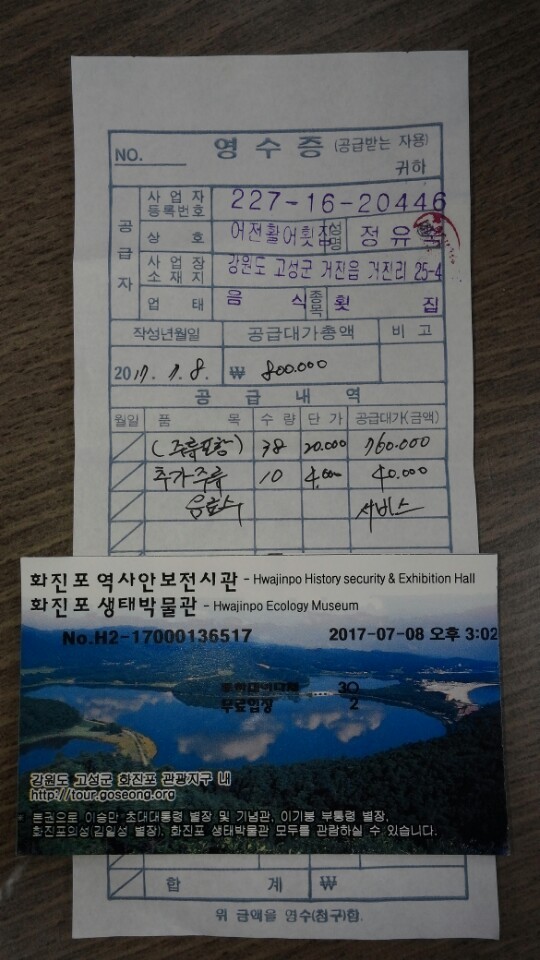 영 수 증 (공급받는 자용)
NO.
귀하
공급자
사업자등록번호 227-16-20446
상 호 어전활어횟집 성명 정유
사업장소재지 강원도 고성군 거진읍 거진리 25-4
업 태 음 식 종목 횟 집
작성년월일 공급대가총액 비 고
2017. 7. 8. ₩ 800.000
공 급 내 역
월일 품 목 수 량 단 가 공급대가(금액)
(주류포함) 38 20.000 760.000
추가주류 10 4.000 40.000
음료수 서비스
화진포 역사안보전시관 - Hwajinpo History security & Exhibition Hall
화진포 생태박물관 - Hwajinpo Ecology Museum
No.H2-17000136517 2017-07-08 오후 3:02
30
무료입장 2
강원도 고성군 화진포 관광지구 내
http://tour.goseong.org
본권으로 이승만 초대대통령 별장 및 기념관, 이기붕 부통령 별장,
화진포의성(김일성 별장), 화진포 생태박물관 모두를 관람하실 수 있습니다.
합 계 ₩
위 금액을 영수(청구)함.